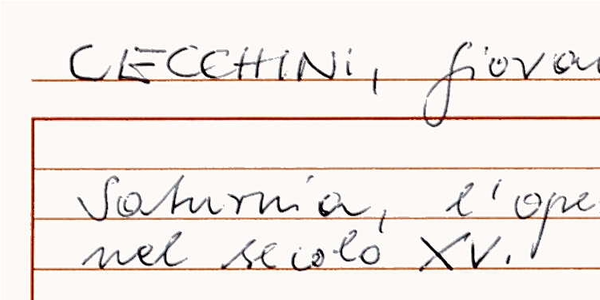 CECCHINI, Giovan
Saturnia, l'ope
nel secolo XV.